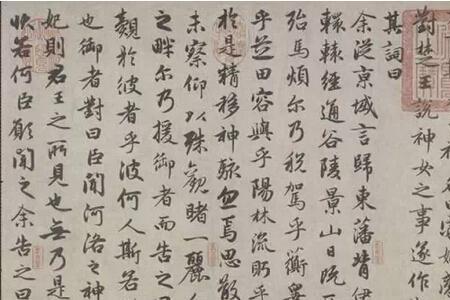 神名曰宓妃
對楚之王說神女之事遂作
其詞曰
余從京域言歸東藩背伊
轘轅經通谷陵景山日既
殆馬煩尔乃稅駕乎蘅
乎芝田容與乎陽林流眄乎
於是精移神駭忽焉思散
未察仰以殊觀睹一麗人
之畔尔乃援御者而告之
覿於彼者乎彼何人斯若
也御者對曰臣聞河洛之神
妃則君王之所見也無乃是
狀若何臣願聞之余告之曰